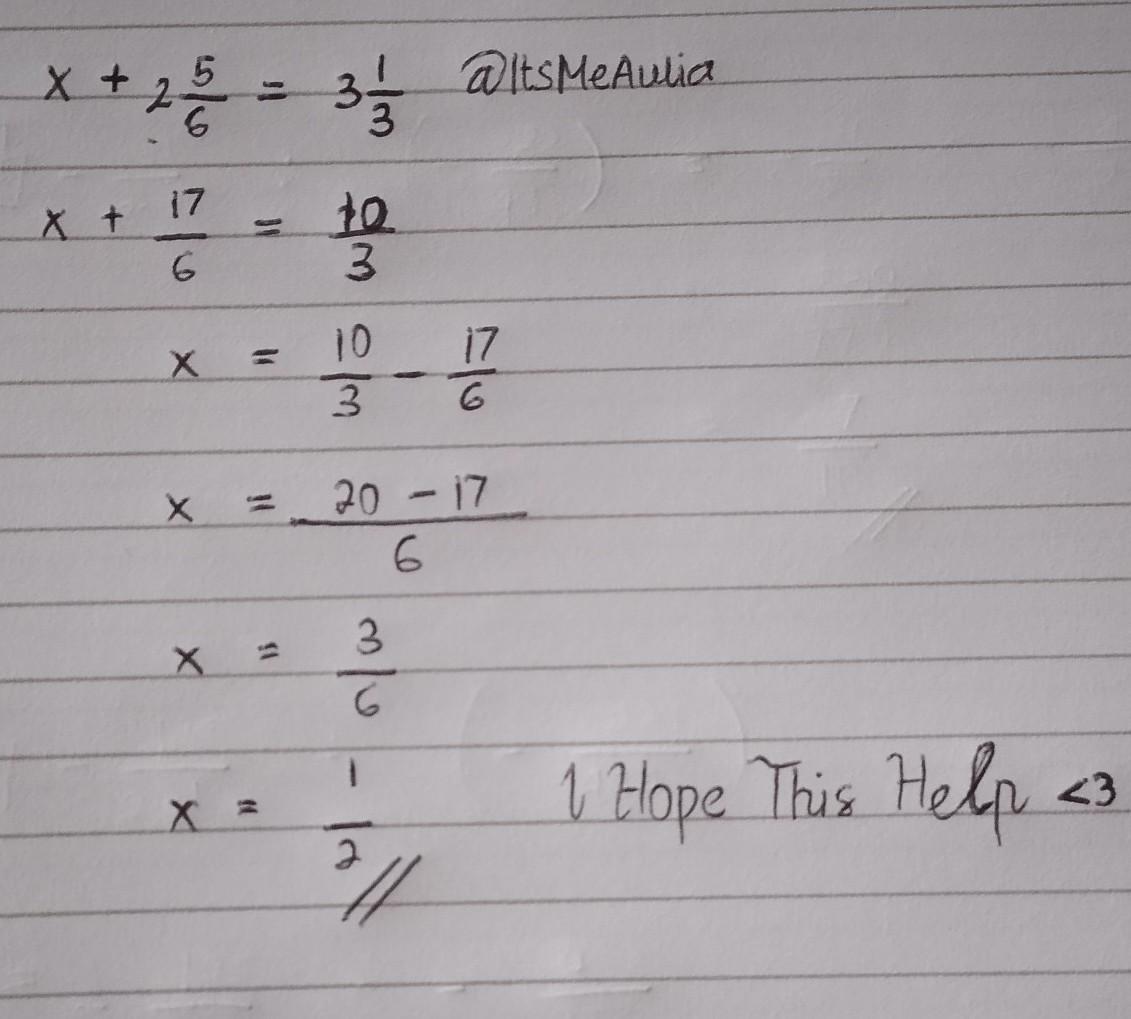 x + 2 5/6 = 3 1/3 @ItsMeAulia
x + 17/6 = 10/3
x = 10/3 - 17/6
x = 20 - 17/6
x = 3/6
x = 1/2 // I Hope This Help <3